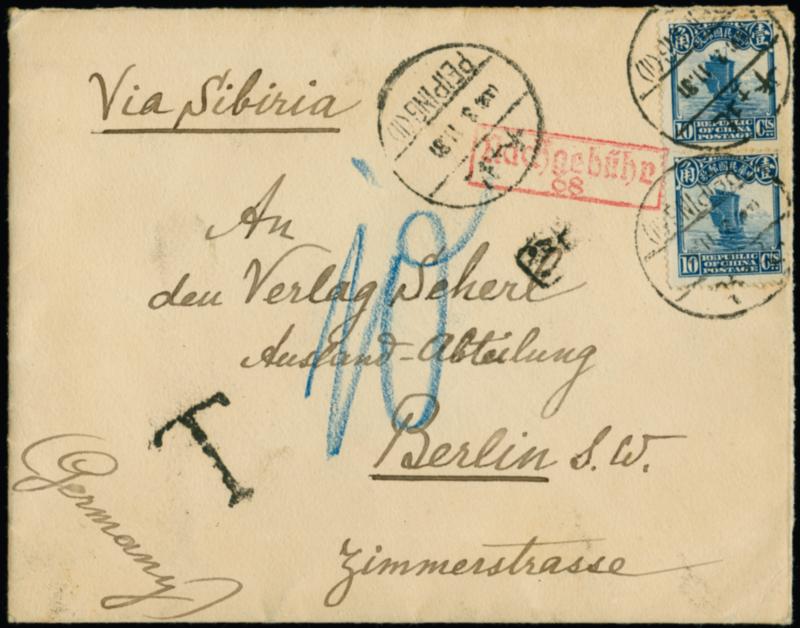 Via Sibiria
PEIPING (1)
Nachgebühr
88
10 Cts.
REPUBLIC
OF CHINA
POSTAGE
10 Cts.
REPUBLIC
OF CHINA
POSTAGE
An
den Verlag Scherl
Ausland-Abteilung
10
T
Berlin S.W.
Zimmerstrasse
(Germany)